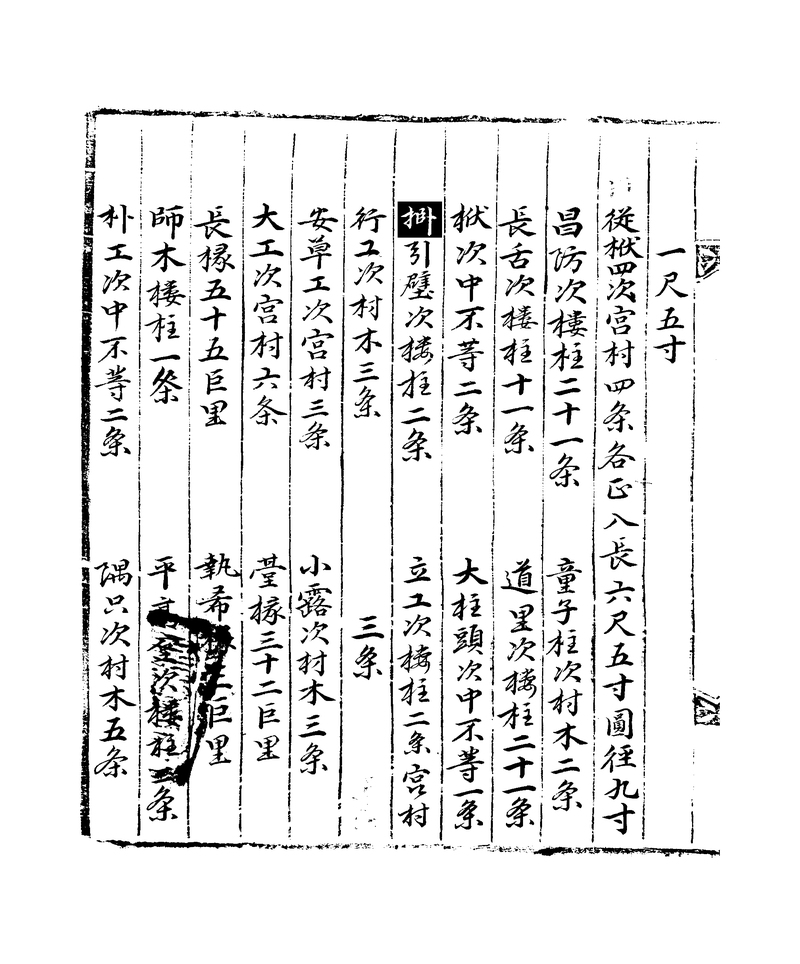 一尺五寸
從栿四次宮材四条各正八長六尺五寸圓徑九寸
昌防次樓柱二十一条 童子柱次材木二条
長舌次樓柱十一条 道里次樓柱二十一条
栿次中不等二条 大柱頭次中不等一条
引壁次樓柱二条 立工次樓柱二条宮材
行工次材木三条 三条
安草工次宮材三条 小露次材木三条
大工次宮材六条 䑓椽三十二巨里
長椽五十五巨里 執布 巨里
師木樓柱一条 平 次樓柱 条
朴工次中不等二条 隅只次材木五条